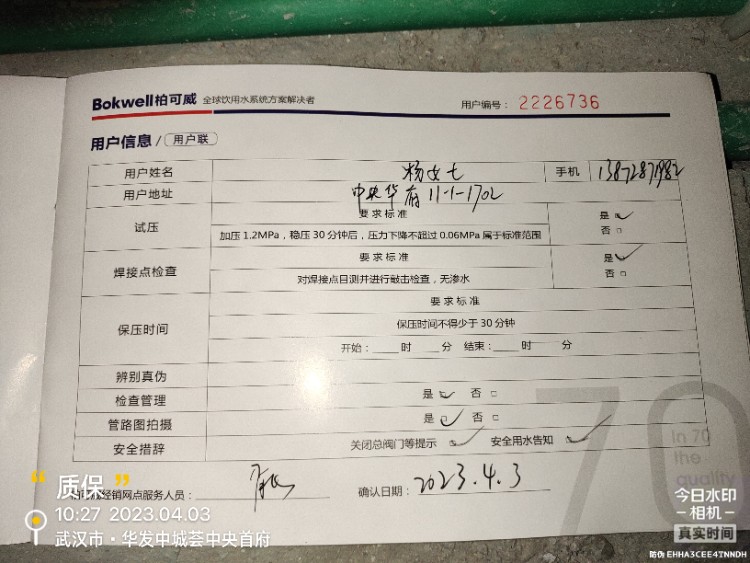 Bokwell柏可威 全球饮用水系统方案解决者 用户编号: 2226736
用户信息 / 用户联
用户姓名 杨女士 手机 13872871982
用户地址 中央华府 11-1-1702
试压 要求标准 是 ✓
加压1.2MPa，稳压30分钟后，压力下降不超过0.06MPa属于标准范围 否 □
焊接点检查 要求标准 是 ✓
对焊接点目测并进行敲击检查，无渗水 否 □
保压时间 要求标准
保压时间不得少于30分钟
开始: ____时 ____分 结束: ____时 ____分
辨别真伪
检查管理 是 ✓ 否 □
管路图拍摄 是 ✓ 否 □
安全措辞 关闭总阀门等提示 ✓ 安全用水告知 ✓
经销网点服务人员: 确认日期: 2023.4.3
70
In 70
the
quality
“质保”
10:27 2023.04.03
武汉市·华发中城荟中央首府
今日水印
-相机-
真实时间
防伪 EHHA3CEE4TNNDH